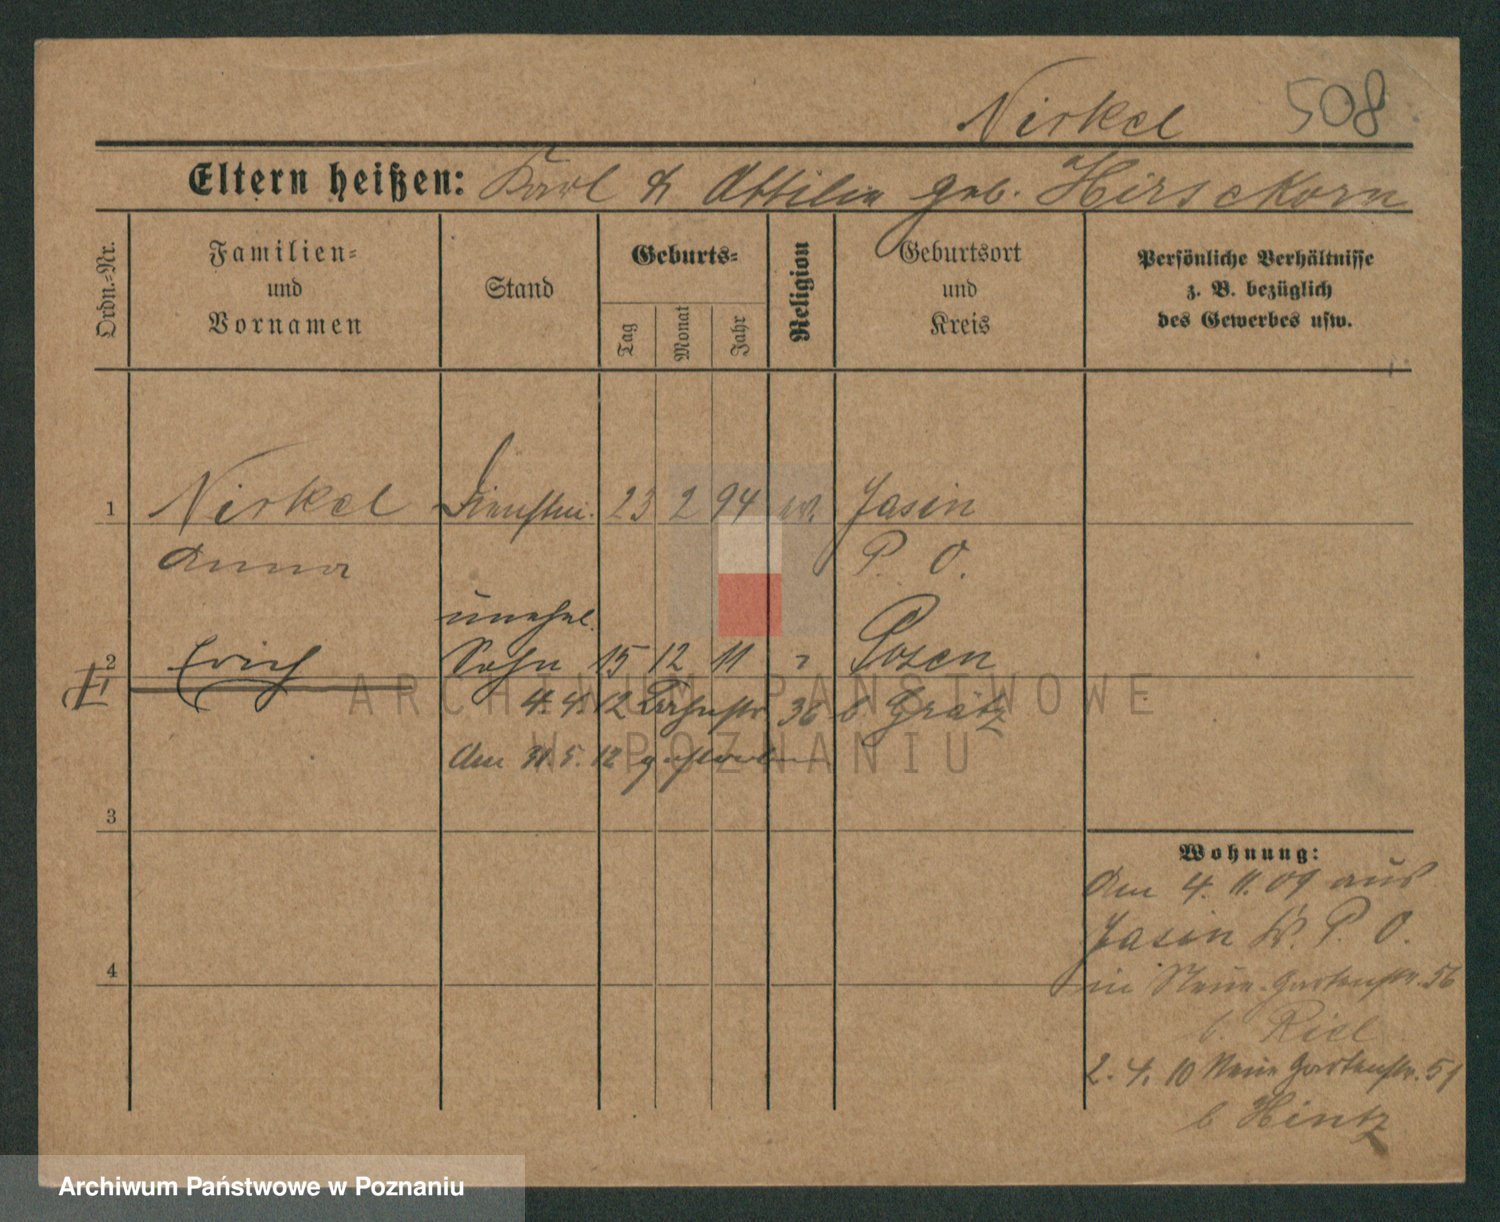 Nirkel 508
Eltern heißen: Karl & Ottilie geb. Hirsekorn
Ordn.-Nr.
Familien-
und
Vornamen
Stand
Geburts-
Tag
Monat
Jahr
Religion
Geburtsort
und
Kreis
Persönliche Verhältnisse
z. B. bezüglich
des Gewerbes usw.
1 Nirkel Dienstm. 23 2 94 ev. Jasin
Anna P. O.
unehel.
2 Erich Sohn 15 12 11 " Posen
4. 4. 12 36 b Grätz
ARCHIWUM PAŃSTWOWE
W POZNANIU
am 31. 5. 12 gestorben
3
4
Wohnung:
Am 4. 11. 09 aus
Jasin Kr. P. O.
Neue Gartenstr. 56
b. Riel
2. 4. 10 Neue Gartenstr. 51
b Hintz
Archiwum Państwowe w Poznaniu